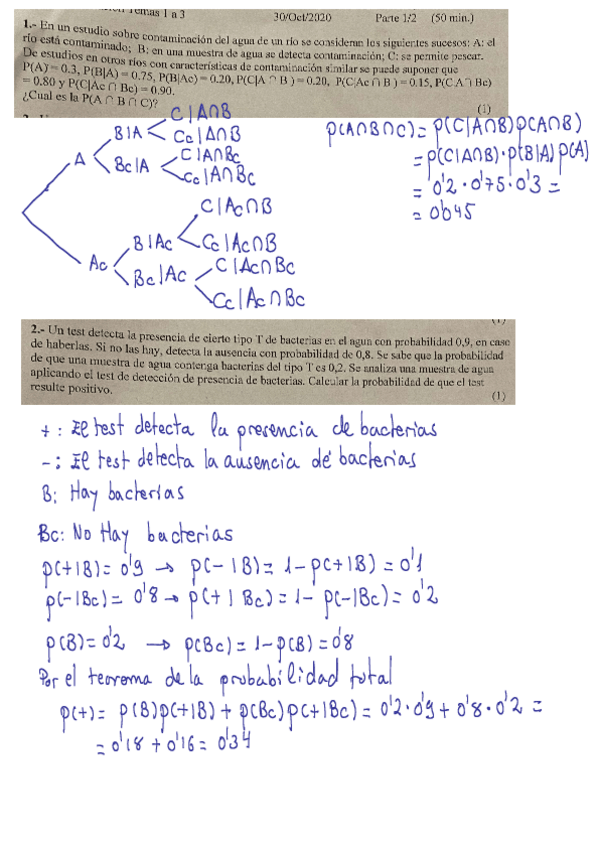 Temas 1 a 3 30/Oct/2020 Parte 1/2 (50 min.)
1.- En un estudio sobre contaminación del agua de un río se consideran los siguientes sucesos: A: el
río está contaminado; B: en una muestra de agua se detecta contaminación; C: se permite pescar.
De estudios en otros ríos con características de contaminación similar se puede suponer que
P(A) = 0.3, P(B|A) = 0.75, P(B|Ac) = 0.20, P(C|A ∩ B ) = 0.20, P(C|Ac ∩ B ) = 0.15, P(C|A ∩ Bc)
= 0.80 y P(C|Ac ∩ Bc) = 0.90.
¿Cual es la P(A ∩ B ∩ C)? (1)
A
B|A
C|A∩B
Cc|A∩B
Bc|A
C|A∩Bc
Cc|A∩Bc
Ac
B|Ac
C|Ac∩B
Cc|Ac∩B
Bc|Ac
C|Ac∩Bc
Cc|Ac∩Bc
P(A∩B∩C)= P(C|A∩B)P(A∩B)
= P(C|A∩B)·P(B|A)P(A)
= 0'2·0'75·0'3 =
= 0'045
(1)
2.- Un test detecta la presencia de cierto tipo T de bacterias en el agua con probabilidad 0,9, en caso
de haberlas. Si no las hay, detecta la ausencia con probabilidad de 0,8. Se sabe que la probabilidad
de que una muestra de agua contenga bacterias del tipo T es 0,2. Se analiza una muestra de agua
aplicando el test de detección de presencia de bacterias. Calcular la probabilidad de que el test
resulte positivo. (1)
+ : El test detecta la presencia de bacterias
- : El test detecta la ausencia de bacterias
B: Hay bacterias
Bc: No Hay bacterias
P(+|B)= 0'9 → P(-|B)= 1-P(+|B) = 0'1
P(-|Bc)= 0'8 → P(+|Bc)= 1- P(-|Bc)= 0'2
P(B)= 0'2 → P(Bc)= 1-P(B)= 0'8
Por el teorema de la probabilidad total
P(+)= P(B)P(+|B)+P(Bc)P(+|Bc)= 0'2·0'9+0'8·0'2 =
= 0'18+0'16= 0'34